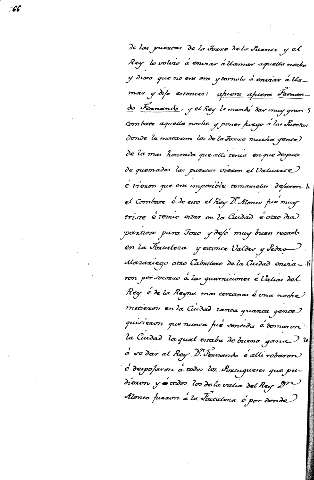 66
de las puertas de la Torre de la Puente y el
Rey lo volvió á enviar á llamar aquella noche
y dixo que no era ora y tornolo á enviar á lla-
mar y dijo estonces: afuera afuera Fernan-
do Fernando, y el Rey le mandó dar muy gran
combate aquella noche y poner fuego á las Puertas
donde le mataron los de la Torre mucha gente
de la mas honrrada que alli tenia en que despues
de quemadas las puertas vieron el Valuarte
é vieron que era imposible tomarselo dejaron
el Combate é de eso el Rey Dn. Alonso fué muy
triste é temió estar en la Ciudad é otro dia
partiose para Toro y dejó muy buen recado
en la Fortaleza y estonce Valdes y Pedro
Mazariego otro Caballero de la Ciudad envia-
ron por secreto á las guarniciones é Valias del
Rey é de la Reyna mas cercanas é una noche
metieron en la Ciudad tanta quanta gente
quisieron que nunca fué sentido é tomaron
la Ciudad la qual estaba de buena gana
á se dar al Rey Dn. Fernando é alli robaron
é despojaron á todos los Portugueses que pu-
dieron y todos los de la valia del Rey Dn.
Alonso fueron á la Fortaleza é por donde